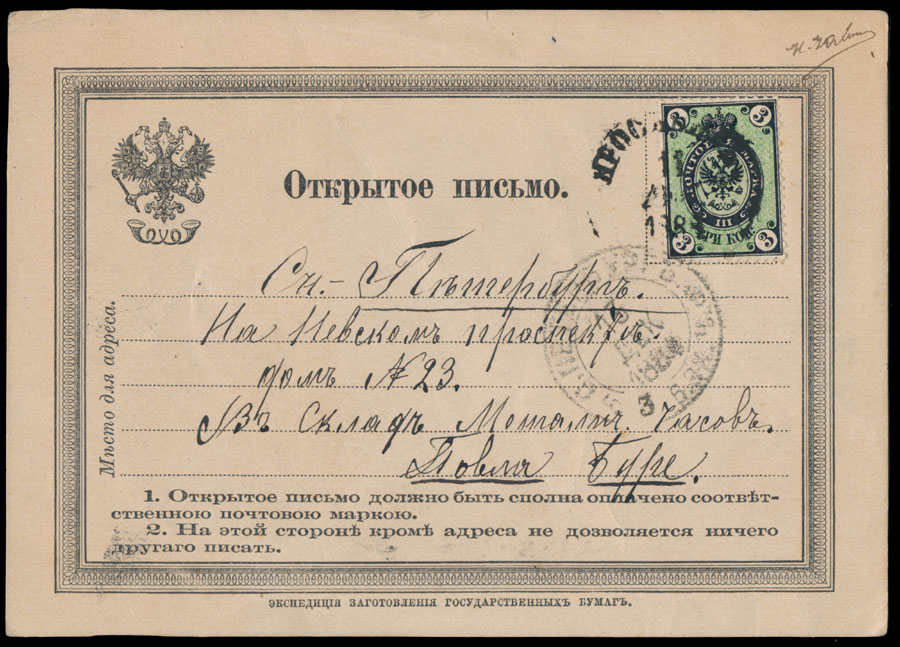 3 3
ПОЧТОВАЯ МАРКА
III
ТРИ КОП.
3 3
ЯРОСЛАВ
Открытое письмо.
Сн.- Пѣтербургъ.
На Невскомъ проспектѣ.
домъ № 23.
Въ Складъ Металич. Часовъ.
Мѣсто для адреса.
Повла Буре.
1. Открытое письмо должно быть сполна оплачено соотвѣт-
ственною почтовою маркою.
2. На этой сторонѣ кромѣ адреса не дозволяется ничего
другаго писать.
ЭКСПЕДИЦІЯ ЗАГОТОВЛЕНІЯ ГОСУДАРСТВЕННЫХЪ БУМАГЪ.